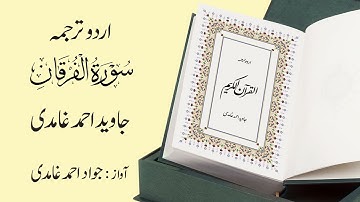 اردو ترجمہ
سُوْرَةُ الْفُرْقَانِ
جاوید احمد غامدی
آواز : جواد احمد غامدی
اردو ترجمہ
القرآن الکریم
جاوید احمد غامدی